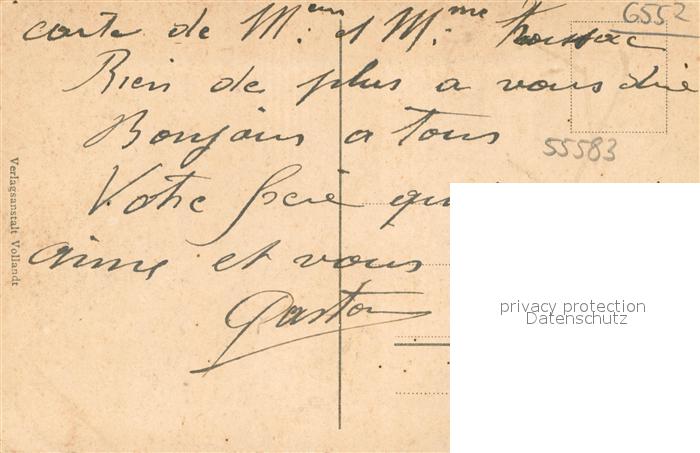 6552
carte de M.eur et M.me
Rien de plus a vous dire
Bonjour a Tous
55583
Votre frere qu
aime et vous
Gaston
Verlagsanstalt Vollandt
privacy protection
Datenschutz